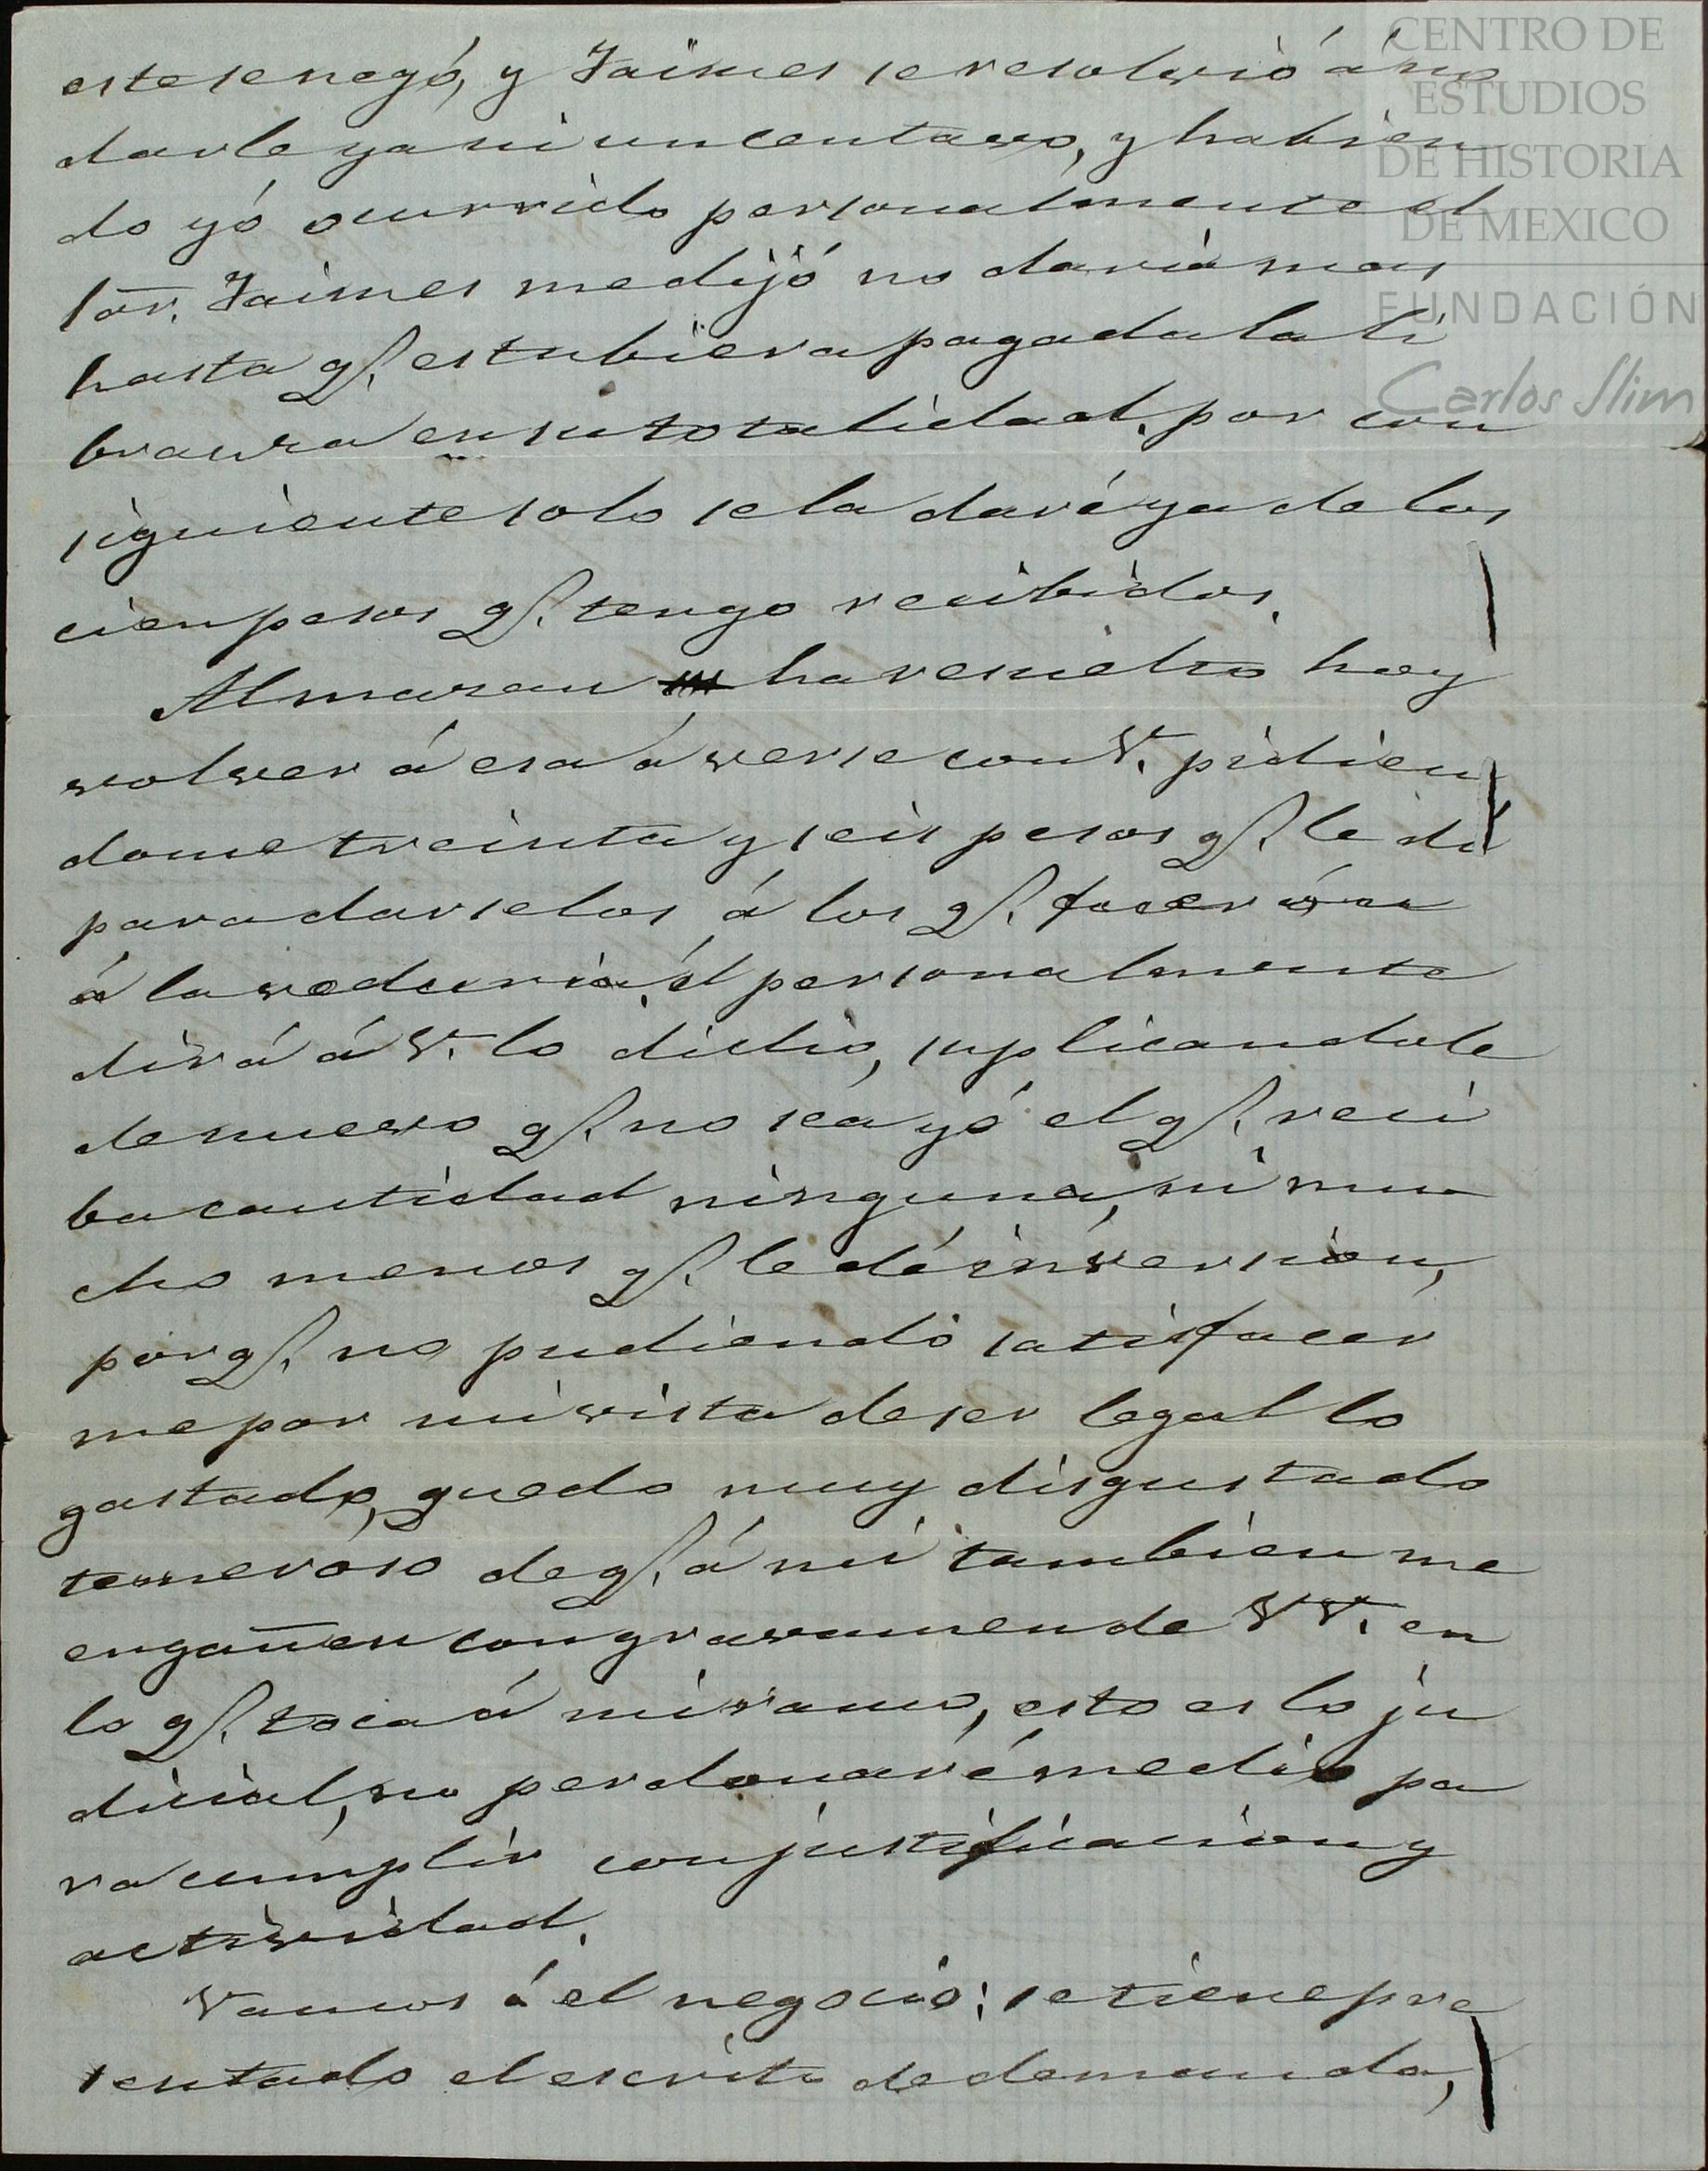 este se negó, y Jaimes se resolvió á no
darle ya ni un centavo, y habien
do yó ocurrido personalmente el
Sõr. Jaimes me dijó no daría mas
hasta q. estubiera pagada la li
branza en su totalidad, por con
siguiente solo se la daré ya de los
cien pesos q. tengo recibidos.
Almazan ha resuelto hoy
volver á esa á verse con V. pidien
dome treinta y seis pesos q. le dí
para darselos á los q.
á la veduria, él personalmente
dirá á V. lo dicho, suplicandole
de nuevo q. no sea yó el q. reci
ba cantidad ninguna, ni mu
cho menos q. le dé inversion,
porq. no pudiendo satisfacer
me por mi vista de ser legal lo
gastado, quedo muy disgustado
temeroso de q. á mí tambien me
engañen con gravamen de VV. en
lo q. toca á mi ramo, esto es lo ju
dicial, no perdonaré medio pa
ra cumplir con justificacion y
actividad.
Vamos á el negocio: se tiene pre
sentado el escrito de demanda,
CENTRO DE
ESTUDIOS
DE HISTORIA
DE MEXICO
FUNDACIÓN
Carlos Slim